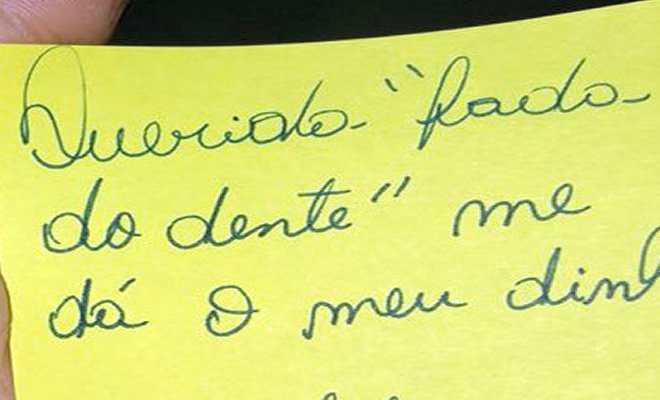 Querida "fada
do dente" me
dá o meu dinh